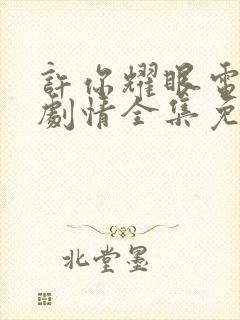 許你耀眼電
劇情全集免
北堂墨